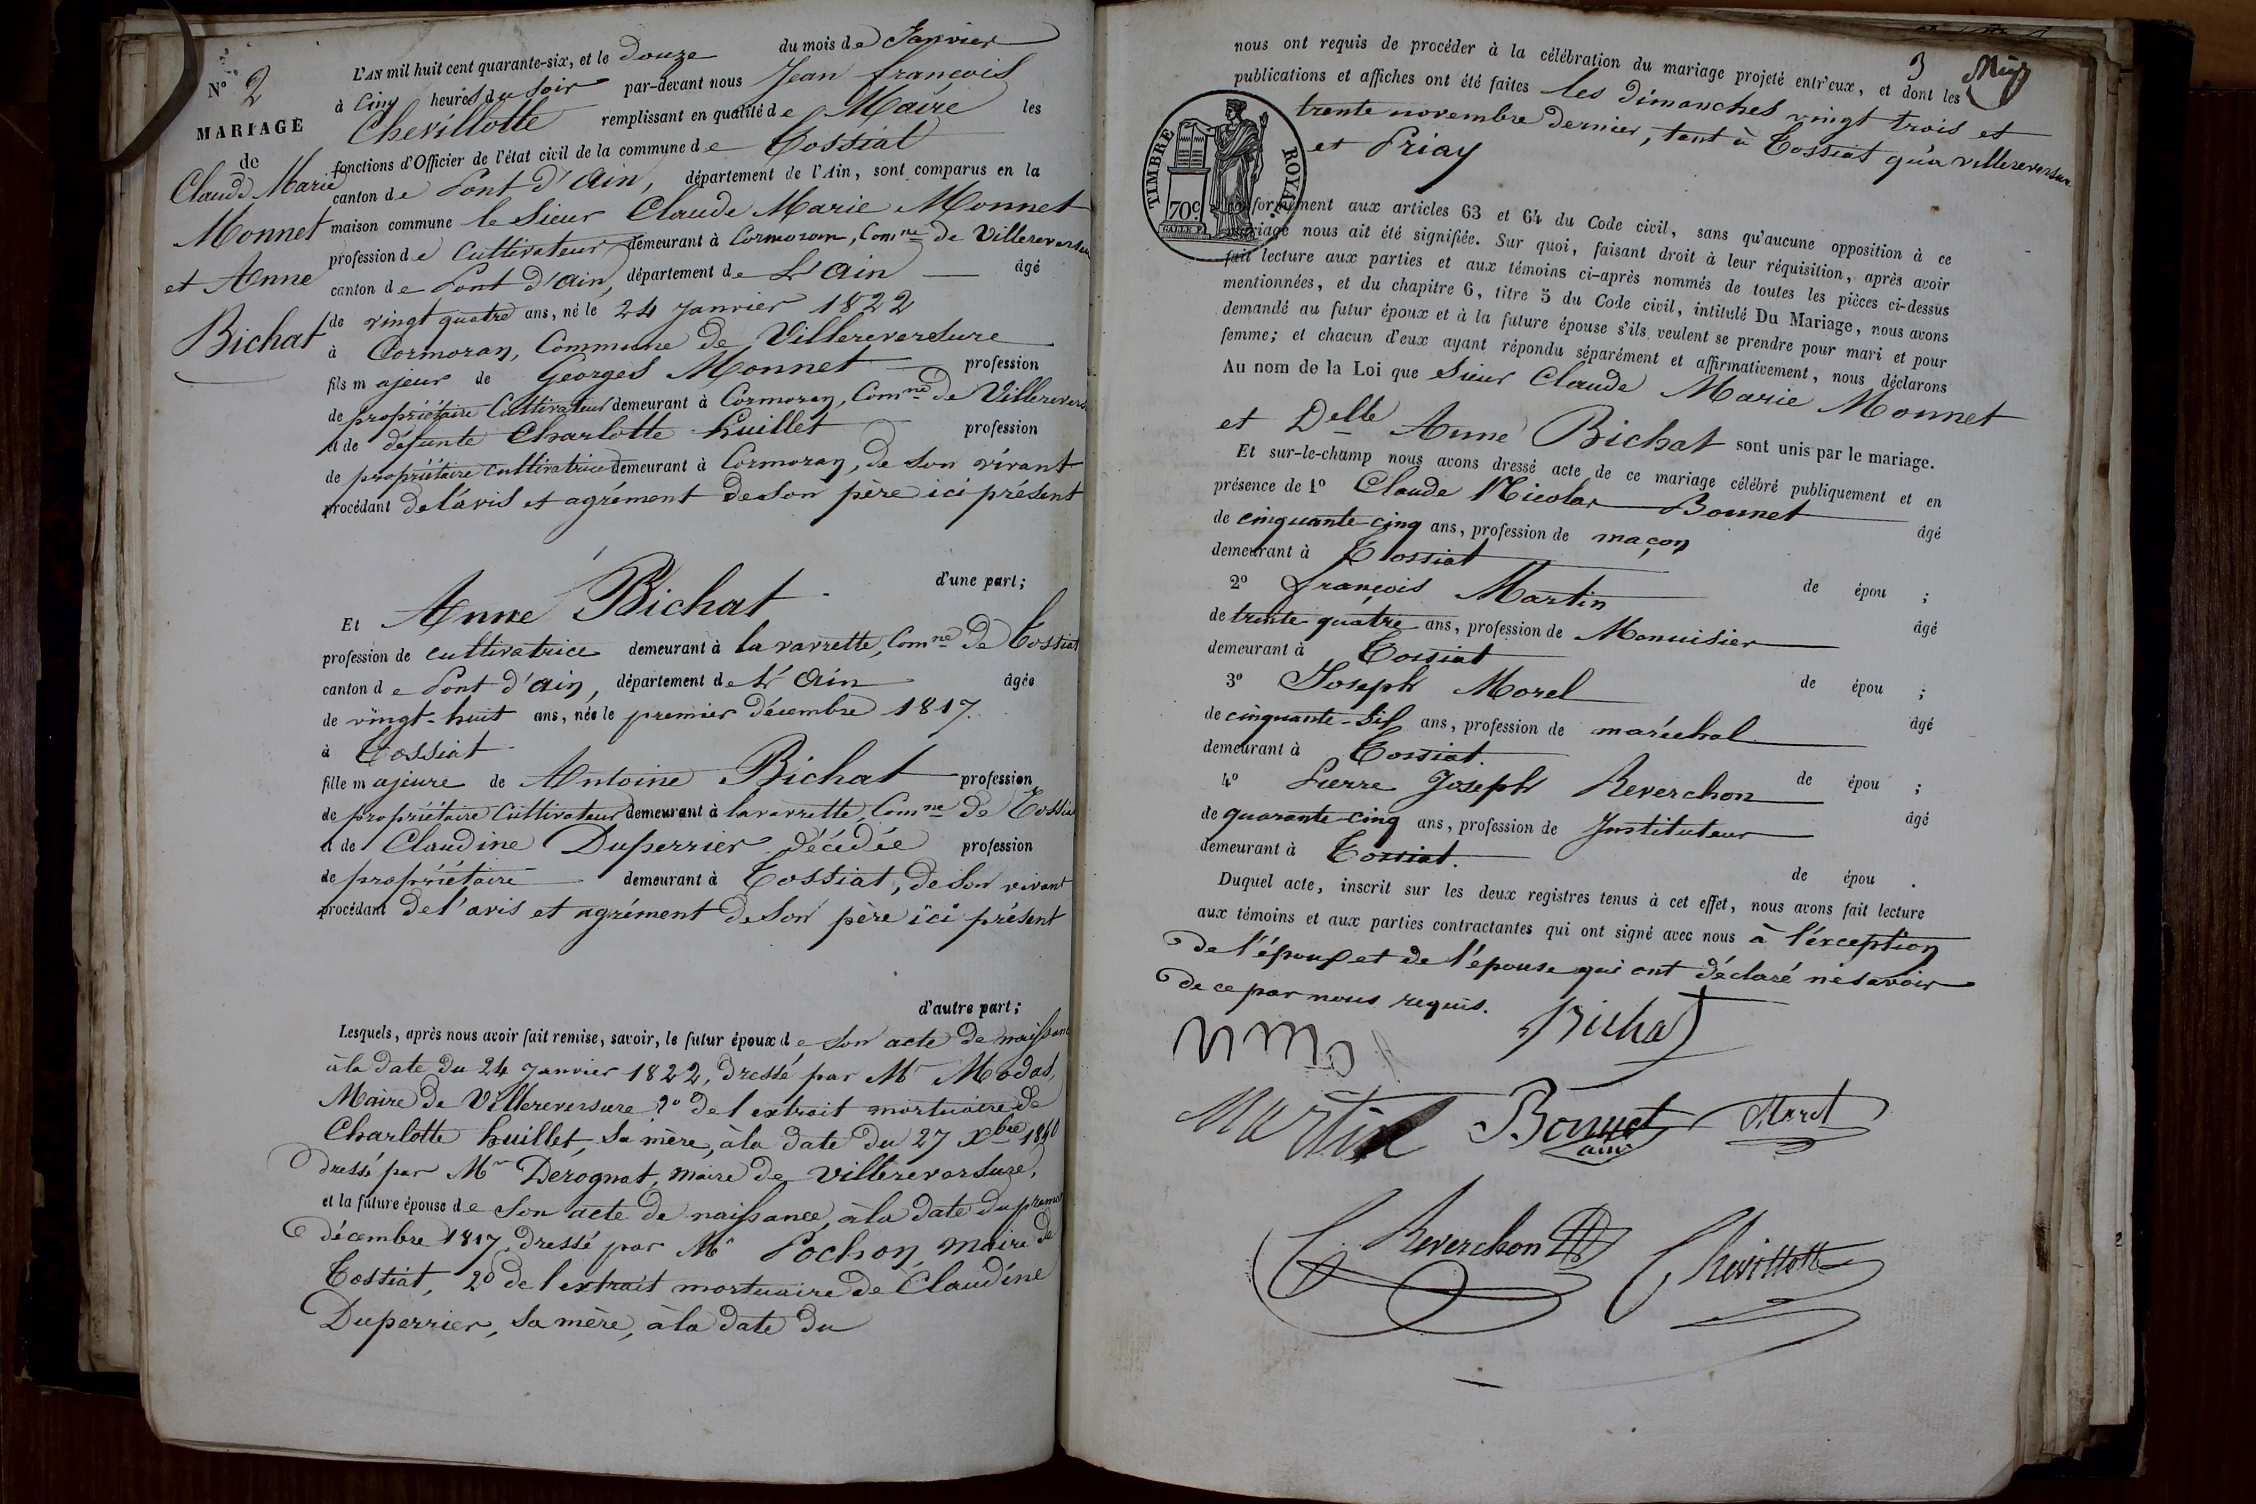 N° 2
MARIAGE
de
Claude Marie
Monnet
et Anne
Bichat
L'AN mil huit cent quarante-six, et le douze du mois de Janvier
à Cinq heures du soir par-devant nous Jean françois
Chevillotte remplissant en qualité de Maire les
fonctions d'Officier de l'état civil de la commune de Tossiat
canton de Pont d'Ain, département de l'Ain, sont comparus en la
maison commune le Sieur Claude Marie Monnet
profession de Cultivateur demeurant à Cormoran, Comne de Villereversure
canton de Pont d'Ain, département de L'Ain âgé
de vingt quatre ans, né le 24 Janvier 1822
à Cormoran, Commune de Villereversure
fils majeur de Georges Monnet profession
de propriétaire Cultivateur demeurant à Cormoran, Comne de Villerevers
et de défunte Charlotte huillet profession
de propriétaire cultivatrice demeurant à Cormoran, de son vivant
procédant de l'avis et agrément de son père ici présent
d'une part;
Et Anne Bichat
profession de cultivatrice demeurant à la varrette, Comne de Tossiat
canton de Pont d'Ain, département de L'Ain âgée
de vingt-huit ans, née le premier décembre 1817.
à Tossiat
fille majeure de Antoine Bichat profession
de propriétaire Cultivateur demeurant à la varrette, Comne de Tossia
et de Claudine Duperrier décédée profession
de propriétaire demeurant à Tossiat, de son vivant
procédant de l'avis et agrément de son père ici présent
d'autre part;
Lesquels, après nous avoir fait remise, savoir, le futur époux de son acte de naissance
à la date du 24 Janvier 1822, dressé par Mr Modas,
Maire de Villereversure 2° de l'extrait mortuaire de
Charlotte huillet, sa mère, à la date du 27 Xbre 1840
dressé par Mr Derognat, maire de Villereversure,
et la future épouse de son acte de naissance, à la date du premier
décembre 1817, dressé par Mr Pochon, maire de
Tossiat, 2° de l'extrait mortuaire de Claudine
Duperrier, sa mère, à la date du
3
nous ont requis de procéder à la célébration du mariage projeté entr'eux, et dont les
publications et affiches ont été faites les dimanches vingt trois et
trente novembre dernier, tant à Tossiat qu'à villereversure
et Priay
TIMBRE ROYAL
70c
conformément aux articles 63 et 64 du Code civil, sans qu'aucune opposition à ce
mariage nous ait été signifiée. Sur quoi, faisant droit à leur réquisition, après avoir
fait lecture aux parties et aux témoins ci-après nommés de toutes les pièces ci-dessus
mentionnées, et du chapitre 6, titre 5 du Code civil, intitulé Du Mariage, nous avons
demandé au futur époux et à la future épouse s'ils veulent se prendre pour mari et pour
femme; et chacun d'eux ayant répondu séparément et affirmativement, nous déclarons
Au nom de la Loi que Sieur Claude Marie Monnet
et Delle Anne Bichat sont unis par le mariage.
Et sur-le-champ nous avons dressé acte de ce mariage célébré publiquement et en
présence de 1° Claude Nicolas Bonnet âgé
de cinquante-cinq ans, profession de maçon
demeurant à Tossiat de épou ;
2° François Martin âgé
de trente quatre ans, profession de Menuisier
demeurant à Tossiat de épou ;
3° Joseph Morel âgé
de cinquante-six ans, profession de maréchal
demeurant à Tossiat. de épou ;
4° Pierre Joseph Reverchon âgé
de quarante-cinq ans, profession de Instituteur
demeurant à Tossiat. de épou .
Duquel acte, inscrit sur les deux registres tenus à cet effet, nous avons fait lecture
aux témoins et aux parties contractantes qui ont signé avec nous à l'éxception
de l'époux et de l'épouse qui ont déclaré ne savoir
de ce par nous requis.
Bichat
Martin Bonnet Morel
ainé
Reverchon Chevillotte